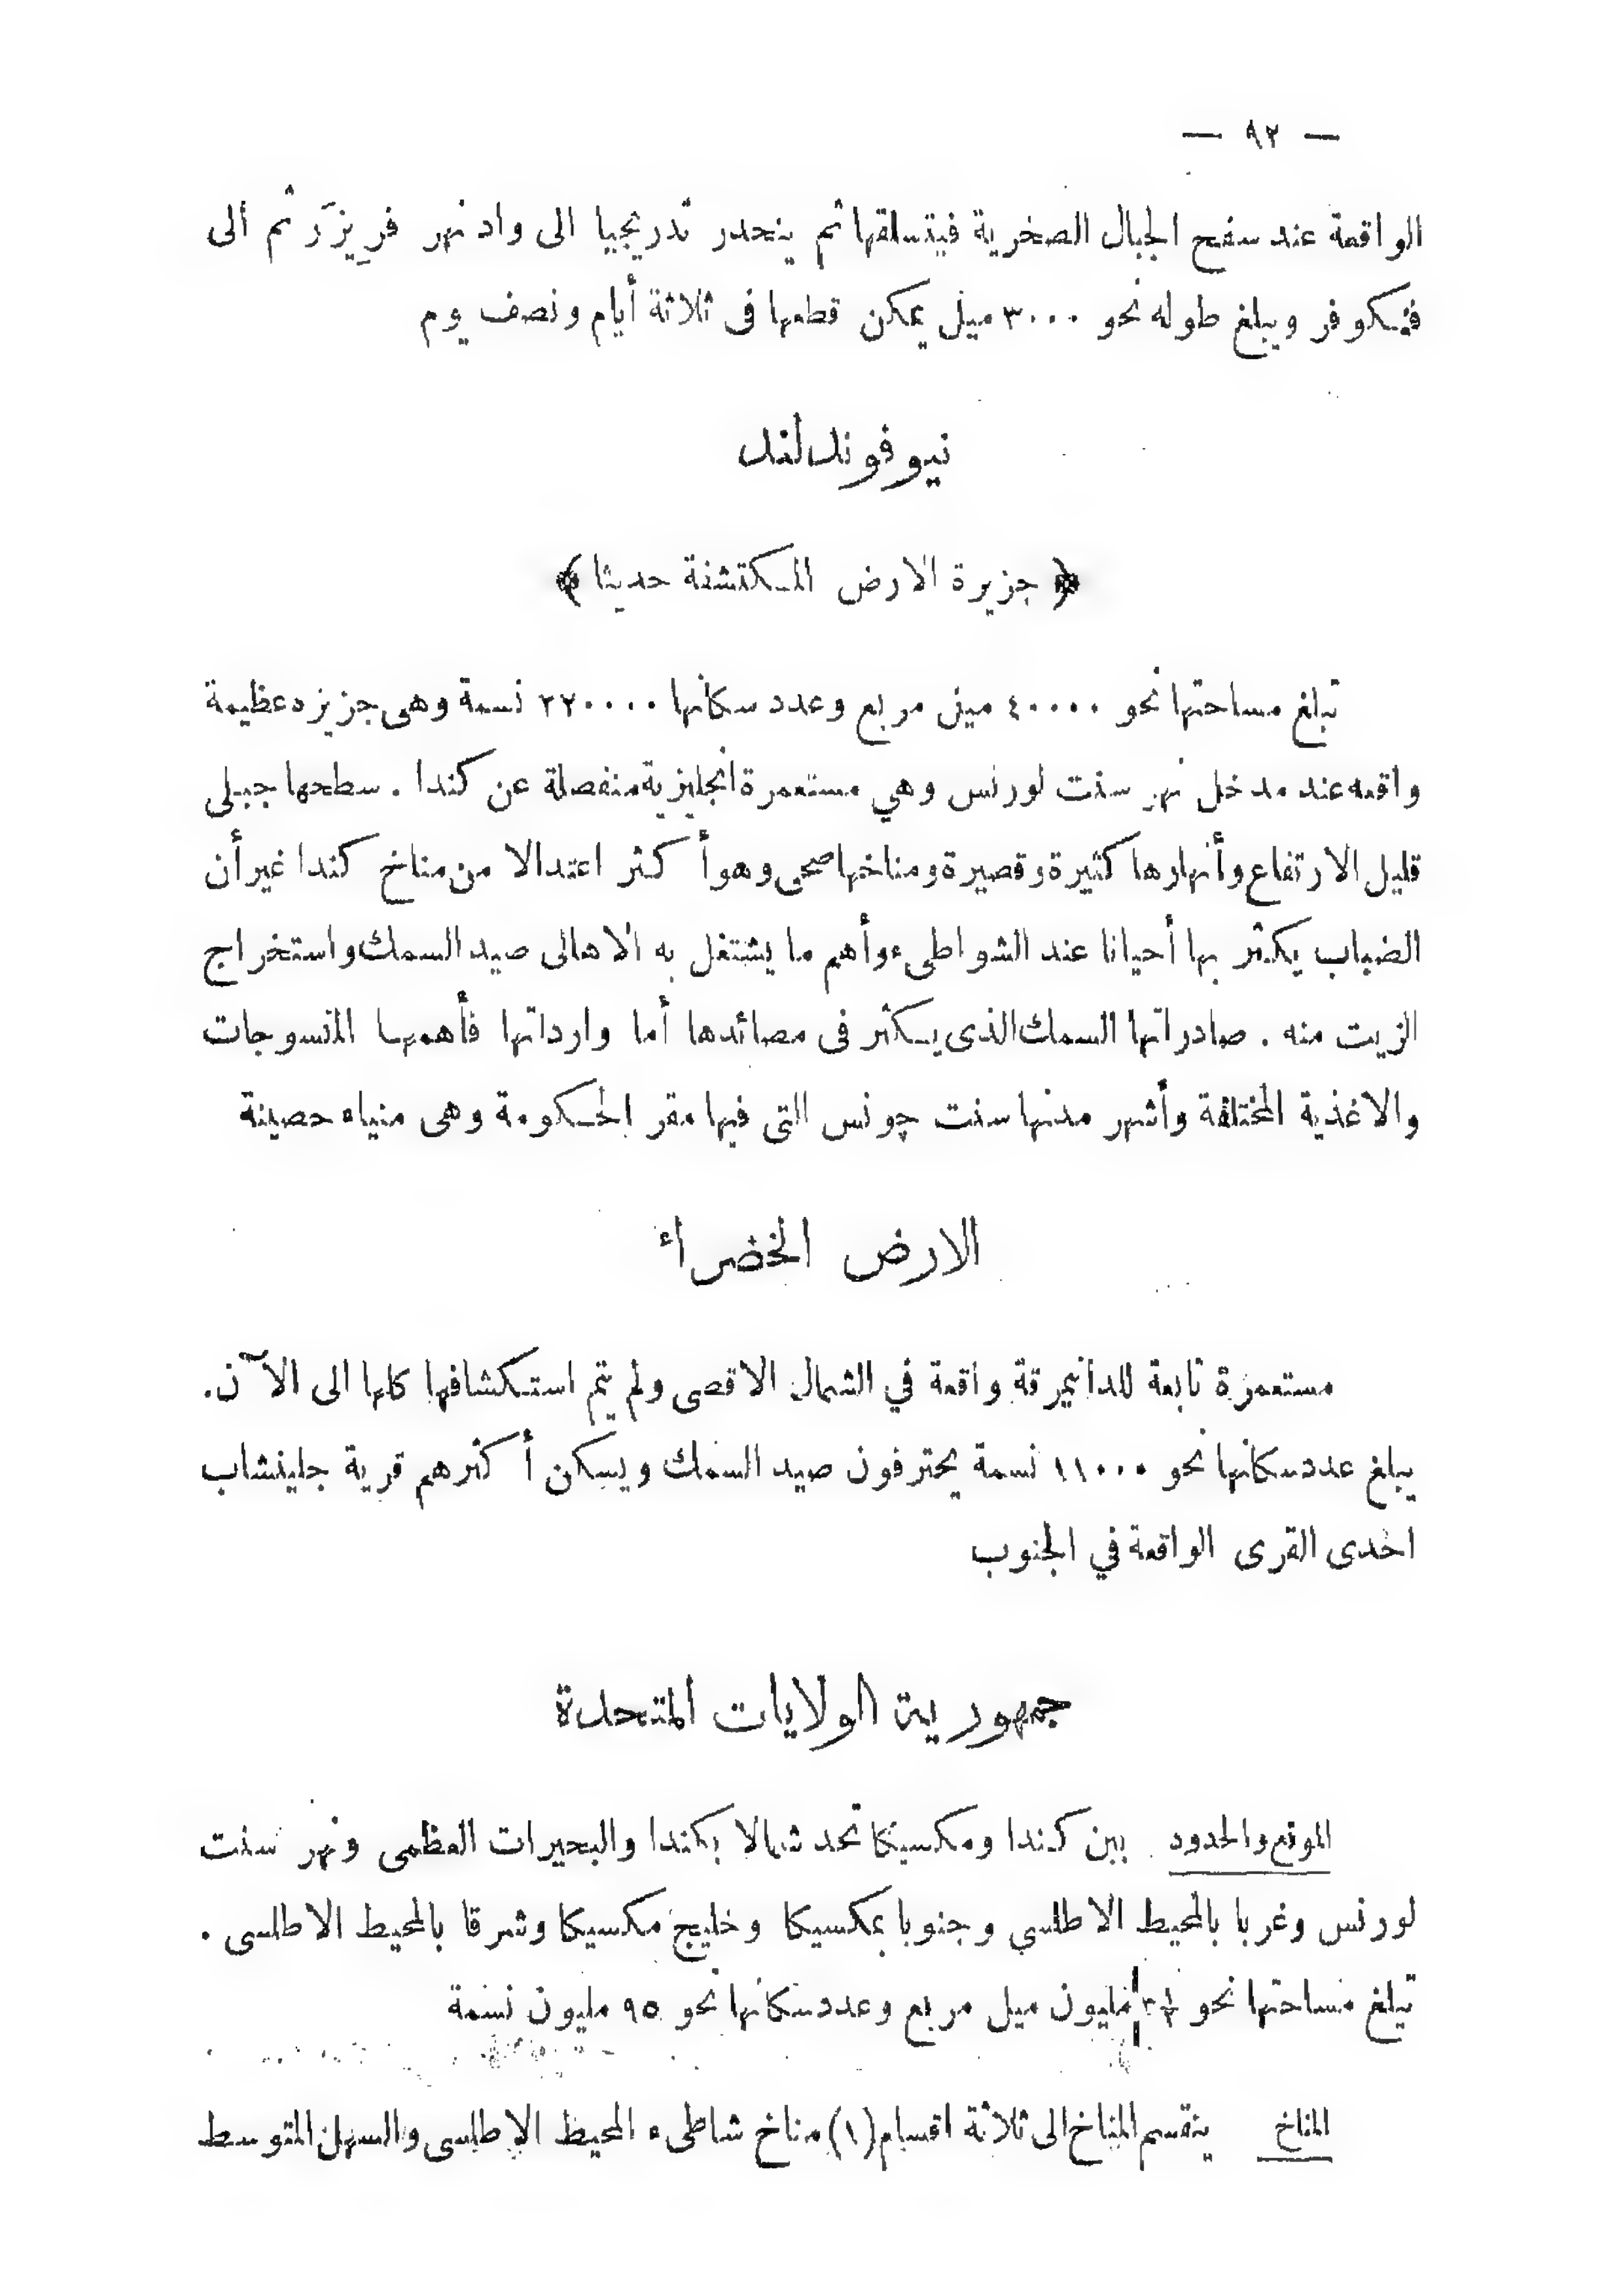 — ٩٢ —
الواقعة عند سفح الجبال الصخرية فيتسلقها ثم ينحدر تدريجيا الى واد نهر فرِيزَر ثم الى
فنكوفر ويبلغ طوله نحو ٣٠٠٠ ميل يمكن قطعها فى ثلاثة أيام ونصف يوم
نيوفوندلند
﴿ جزيرة الارض المكتشفة حديثا ﴾
تبلغ مساحتها نحو ٤٠٠٠٠ ميل مربع وعدد سكانها ٢٢٠٠٠٠ نسمة وهى جزيره عظيمة
واقعه عند مدخل نهر سنت لورنس وهي مستعمرة انجليزية منفصلة عن كندا . سطحها جبلى
قليل الارتفاع وأنهارها كثيرة وقصيرة ومناخها صحى وهو أكثر اعتدالا من مناخ كندا غير أن
الضباب يكثر بها أحيانا عند الشواطىء وأهم ما يشتغل به الاهالى صيد السمك واستخراج
الزيت منه . صادراتها السمك الذى يكثر فى مصائدها أما وارداتها فأهمها المنسوجات
والاغذية المختلفة وأشهر مدنها سنت چونس التى فيها مقر الحكومة وهى منياه حصينة
الارض الخضراء
مستعمرة تابعة للدانيمرقة واقعة في الشمال الاقصى ولم يتم استكشافها كلها الى الآن .
يبلغ عدد سكانها نحو ١١٠٠٠ نسمة يحترفون صيد السمك ويسكن أكثرهم قرية جلينشاب
احدى القرى الواقعة في الجنوب
جمهورية الولايات المتحدة
الموقع والحدود بين كندا ومكسيكا تحد شمالا بكندا والبحيرات العظمى ونهر سنت
لورنس وغربا بالمحيط الاطلسي وجنوبا بمكسيكا وخليج مكسيكا وشرقا بالمحيط الاطلسى .
تبلغ مساحتها نحو مليون ميل مربع وعدد سكانها نحو ٩٥ مليون نسمة
المناخ ينقسم المناخ الى ثلاثة اقسام (١) مناخ شاطىء المحيط الاطلسى والسهل المتوسط